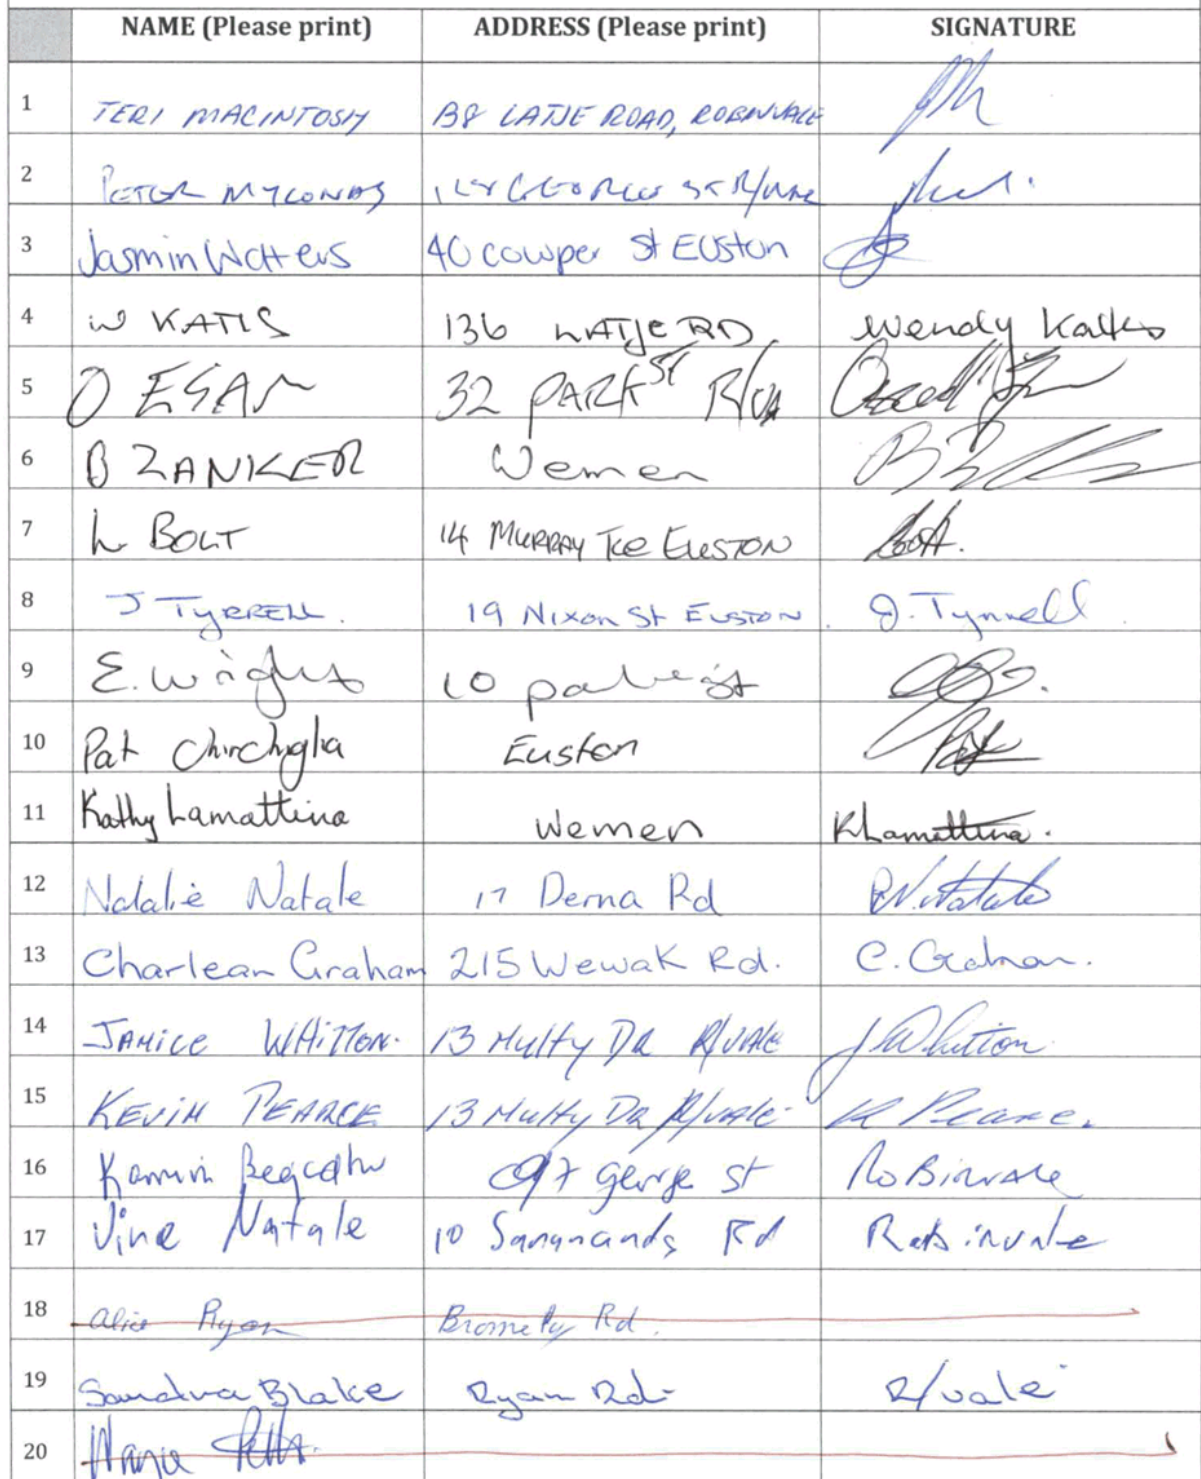 NAME (Please print) ADDRESS (Please print) SIGNATURE
1 TERI MACINTOSH B8 LATJE ROAD, ROBINVALE
2 PETER MYCONOS GEORGE ST R/VALE
3 Jasmin Watters 40 Cowper St Euston
4 W KATIS 136 LATJE RD Wendy Katis
5 O ESAN 32 PARK ST R/VA
6 B ZANKER Wemen
7 L BOLT 14 MURRAY TCE EUSTON Bolt.
8 J TYRRELL. 19 Nixon St EUSTON. J. Tyrrell
9 E. Wright 10
10 Pat Chirchiglia Euston Pat
11 Kathy Lamattina Wemen KLamattina.
12 Natalie Natale 17 Derna Rd N. Natale
13 Charlean Graham 215 Wewak Rd. C. Graham.
14 JANICE WHITTON. 13 Hulty DR R/VALE J Whitton
15 KEVIN PEARCE 13 Hulty DR R/vale K Pearce.
16 97 george St ROBINVALE
17 Vine Natale 10 Sanananda Rd Robinvale
18 Alice Ryan Rd.
19 Sandra Blake Ryan Rd- R/vale
20